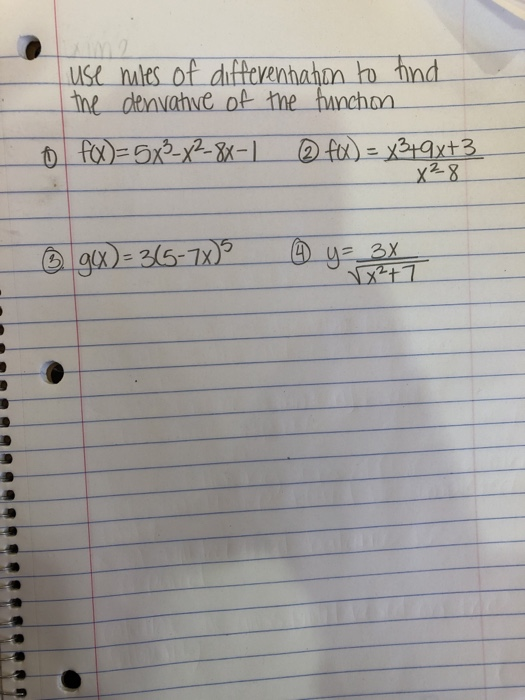 use rules of differentiation to find
the derivative of the function
① f(x) = 5x³-x²-8x-1 ② f(x) = x³+9x+3
x²-8
③ g(x) = 3(5-7x)⁵ ④ y = 3x
√x²+7